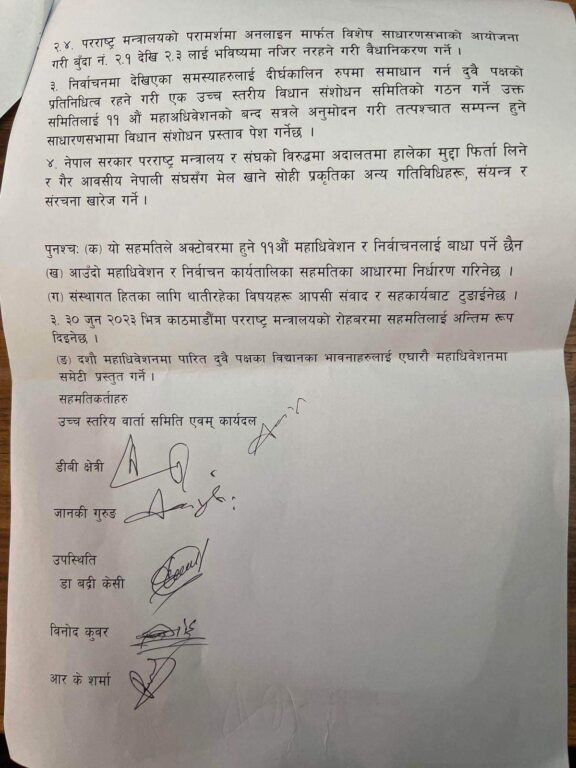 २.४. परराष्ट्र मन्त्रालयको परामर्शमा अनलाइन मार्फत विशेष साधारणसभाको आयोजना
गरी बुँदा नं. २.१ देखि २.३ लाई भविष्यमा नजिर नरहने गरी वैधानिकरण गर्ने ।
३. निर्वाचनमा देखिएका समस्याहरुलाई दीर्घकालिन रुपमा समाधान गर्न दुवै पक्षको
प्रतिनिधित्व रहने गरी एक उच्च स्तरीय विधान संशोधन समितिको गठन गर्ने उक्त
समितिलाई ११ औं महाअधिवेशनको बन्द सत्रले अनुमोदन गरी तत्पश्चात सम्पन्न हुने
साधारणसभामा विधान संशोधन प्रस्ताव पेश गर्नेछ ।
४. नेपाल सरकार परराष्ट्र मन्त्रालय र संघको विरुद्धमा अदालतमा हालेका मुद्दा फिर्ता लिने
र गैर आवसीय नेपाली संघसँग मेल खाने सोही प्रकृतिका अन्य गतिविधिहरू, संयन्त्र र
संरचना खारेज गर्ने ।
पुनश्च: (क) यो सहमतिले अक्टोबरमा हुने ११औं महाधिवेशन र निर्वाचनलाई बाधा पर्ने छैन
(ख) आउँदो महाधिवेशन र निर्वाचन कार्यतालिका सहमतिका आधारमा निर्धारण गरिनेछ ।
(ग) संस्थागत हितका लागि थातीरहेका विषयहरू आपसी संवाद र सहकार्यबाट टुङ्गाईनेछ ।
३. ३० जुन २०२३ भित्र काठमाडौंमा परराष्ट्र मन्त्रालयको रोहबरमा सहमतिलाई अन्तिम रूप
दिइनेछ ।
(ङ) दशौ महाधिवेशनमा पारित दुवै पक्षका विद्यानका भावनाहरुलाई एघारौ महाधिवेशनमा
समेटी प्रस्तुत गर्ने ।
सहमतिकर्ताहरु
उच्च स्तरिय वार्ता समिति एवम् कार्यदल
डीबी क्षेत्री
जानकी गुरुङ
उपस्थिति
डा बद्री केसी
विनोद कुवर
आर के शर्मा